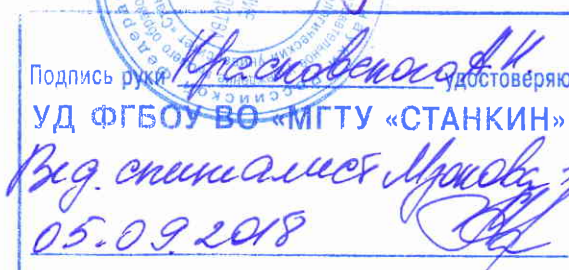 Подпись руки Красновского А.Н. удостоверяю
УД ФГБОУ ВО «МГТУ «СТАНКИН»
Вед. специалист
05.09.2018